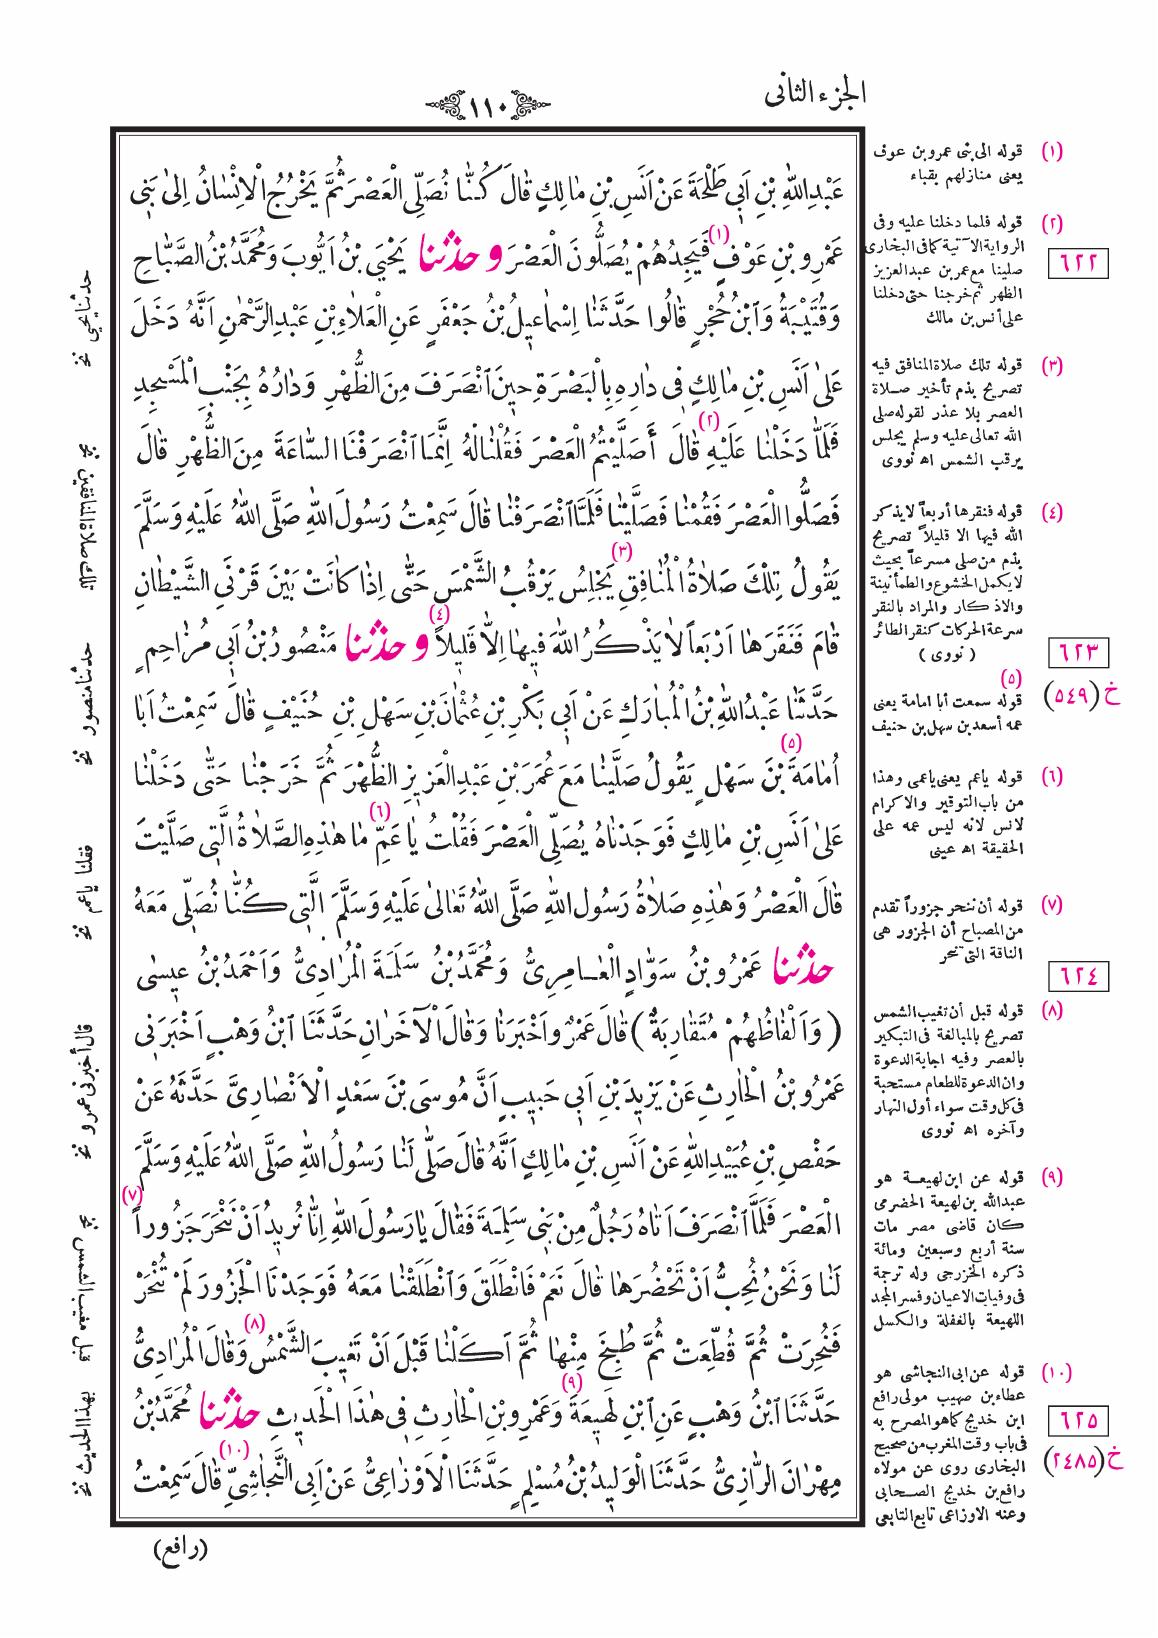 الجزء الثانى
١١٠
عَبْدِاللّٰهِ بْنِ اَبِي طَلْحَةَ عَنْ اَنَسِ بْنِ مٰالِكٍ قٰالَ كُنّٰا نُصَلِّى الْعَصْرَ ثُمَّ يَخْرُجُ الْاِنْسٰانُ اِلىٰ بَنِى
عَمْرِو بْنِ عَوْفٍ (١) فَيَجِدُهُمْ يُصَلُّونَ الْعَصْرَ و حدّثنا يَحْيَى بْنُ اَيُّوبَ وَمُحَمَّدُ بْنُ الصَّبّٰاحِ
وَقُتَيْبَةُ وَابْنُ حُجْرٍ قٰالُوا حَدَّثَنٰا اِسْمٰاعِيلُ بْنُ جَعْفَرٍ عَنِ الْعَلاٰءِ بْنِ عَبْدِالرَّحْمٰنِ اَنَّهُ دَخَلَ
عَلىٰ اَنَسِ بْنِ مٰالِكٍ فِى دٰارِهِ بِالْبَصْرَةِ حِينَ انْصَرَفَ مِنَ الظُّهْرِ وَدٰارُهُ بِجَنْبِ الْمَسْجِدِ
فَلَمّٰا دَخَلْنٰا عَلَيْهِ (٢) قٰالَ أَصَلَّيْتُمُ الْعَصْرَ فَقُلْنٰا لَهُ اِنَّمَا انْصَرَفْنَا السّٰاعَةَ مِنَ الظُّهْرِ قٰالَ
فَصَلُّوا الْعَصْرَ فَقُمْنٰا فَصَلَّيْنٰا فَلَمَّا انْصَرَفْنٰا قٰالَ سَمِعْتُ رَسُولَ اللّٰهِ صَلَّى اللّٰهُ عَلَيْهِ وَسَلَّمَ
يَقُولُ تِلْكَ صَلاٰةُ الْمُنٰافِقِ (٣) يَجْلِسُ يَرْقُبُ الشَّمْسَ حَتّٰى اِذٰا كٰانَتْ بَيْنَ قَرْنَيِ الشَّيْطٰانِ
قٰامَ فَنَقَرَهٰا اَرْبَعاً لاٰ يَذْكُرُ اللّٰهَ فِيهٰا اِلاّٰ قَلِيلاً (٤) و حدّثنا مَنْصُورُ بْنُ اَبِى مُزٰاحِمٍ
حَدَّثَنٰا عَبْدُ اللّٰهِ بْنُ الْمُبٰارَكِ عَنْ اَبِى بَكْرِ بْنِ عُثْمٰانَ بْنِ سَهْلِ بْنِ حُنَيْفٍ قٰالَ سَمِعْتُ اَبٰا
اُمٰامَةَ بْنَ سَهْلٍ (٥) يَقُولُ صَلَّيْنٰا مَعَ عُمَرَ بْنِ عَبْدِ الْعَزِيزِ الظُّهْرَ ثُمَّ خَرَجْنٰا حَتّٰى دَخَلْنٰا
عَلىٰ اَنَسِ بْنِ مٰالِكٍ فَوَجَدْنٰاهُ يُصَلِّى الْعَصْرَ فَقُلْتُ يٰا عَمِّ (٦) مٰا هٰذِهِ الصَّلاٰةُ الَّتِى صَلَّيْتَ
قٰالَ الْعَصْرُ وَهٰذِهِ صَلاٰةُ رَسُولِ اللّٰهِ صَلَّى اللّٰهُ تَعٰالىٰ عَلَيْهِ وَسَلَّمَ الَّتِى كُنّٰا نُصَلِّى مَعَهُ
حدّثنا عَمْرُو بْنُ سَوّٰادٍ الْعٰامِرِىُّ وَمُحَمَّدُ بْنُ سَلَمَةَ الْمُرٰادِىُّ وَاَحْمَدُ بْنُ عِيسٰى
(وَاَلْفٰاظُهُمْ مُتَقٰارِبَةٌ) قٰالَ عَمْرٌو اَخْبَرَنٰا وَقٰالَ الْآخَرٰانِ حَدَّثَنَا ابْنُ وَهْبٍ اَخْبَرَنِى
عَمْرُو بْنُ الْحٰارِثِ عَنْ يَزِيدَ بْنِ اَبِى حَبِيبٍ اَنَّ مُوسَى بْنَ سَعْدٍ الْاَنْصٰارِىَّ حَدَّثَهُ عَنْ
حَفْصِ بْنِ عُبَيْدِاللّٰهِ عَنْ اَنَسِ بْنِ مٰالِكٍ اَنَّهُ قٰالَ صَلّٰى لَنٰا رَسُولُ اللّٰهِ صَلَّى اللّٰهُ عَلَيْهِ وَسَلَّمَ
الْعَصْرَ فَلَمَّا انْصَرَفَ اَتٰاهُ رَجُلٌ مِنْ بَنِى سَلِمَةَ فَقٰالَ يٰا رَسُولَ اللّٰهِ اِنّٰا نُرِيدُ اَنْ نَنْحَرَ جَزُوراً (٧)
لَنٰا وَنَحْنُ نُحِبُّ اَنْ تَحْضُرَهٰا قٰالَ نَعَمْ فَانْطَلَقَ وَانْطَلَقْنٰا مَعَهُ فَوَجَدْنَا الْجَزُورَ لَمْ تُنْحَرْ
فَنُحِرَتْ ثُمَّ قُطِّعَتْ ثُمَّ طُبِخَ مِنْهٰا ثُمَّ اَكَلْنٰا قَبْلَ اَنْ تَغِيبَ الشَّمْسُ (٨) وَقٰالَ الْمُرٰادِىُّ
حَدَّثَنَا ابْنُ وَهْبٍ عَنِ ابْنِ لَهِيعَةَ (٩) وَعَمْرِو بْنِ الْحٰارِثِ فِى هٰذَا الْحَدِيثِ حدّثنا مُحَمَّدُ بْنُ
مِهْرٰانَ الرّٰازِىُّ حَدَّثَنَا الْوَلِيدُ بْنُ مُسْلِمٍ حَدَّثَنَا الْاَوْزٰاعِىُّ عَنْ اَبِى النَّجٰاشِىِّ (١٠) قٰالَ سَمِعْتُ
(رافع)
(١) قوله الى بنى عمرو بن عوف
يعنى منازلهم بقباء
(٢) قوله فلما دخلنا عليه وفى
الرواية الآتية كما فى البخارى
صلينا مع عمر بن عبدالعزيز
الظهر ثم خرجنا حتى دخلنا
على أنس بن مالك
٦٢٢
(٣) قوله تلك صلاة المنافق فيه
تصريح بذم تأخير صلاة
العصر بلا عذر لقوله صلى
الله تعالى عليه وسلم يجلس
يرقب الشمس اه نووى
(٤) قوله فنقرها أربعاً لا يذكر
الله فيها الا قليلاً تصريح
بذم من صلى مسرعاً بحيث
لا يكمل الخشوع والطمأنينة
والاذكار والمراد بالنقر
سرعة الحركات كنقر الطائر
( نووى )
٦٢٣
خ (٥٤٩)
(٥)
قوله سمعت أبا امامة يعنى
عمه أسعد بن سهل بن حنيف
(٦) قوله ياعم يعنى ياعمى وهذا
من باب التوقير والاكرام
لانس لانه ليس عمه على
الحقيقة اه عينى
(٧) قوله أن ننحر جزوراً تقدم
من المصباح أن الجزور هى
الناقة التى تنحر
٦٢٤
(٨) قوله قبل أن تغيب الشمس
تصريح بالمبالغة فى التبكير
بالعصر وفيه اجابة الدعوة
وان الدعوة للطعام مستحبة
فى كل وقت سواء أول النهار
وآخره اه نووى
(٩) قوله عن ابن لهيعة هو
عبدالله بن لهيعة الحضرمى
كان قاضى مصر مات
سنة أربع وسبعين ومائة
ذكره الخزرجى وله ترجمة
فى وفيات الاعيان وفسر المجد
اللهيعة بالغفلة والكسل
(١٠) قوله عن ابى النجاشى هو
عطاء بن صهيب مولى رافع
ابن خديج كما هو المصرح به
فى باب وقت المغرب من صحيح
البخارى روى عن مولاه
رافع بن خديج الصحابى
وعنه الاوزاعى تابع التابعى
٦٢٥
خ (٢٤٨٥)
حدثنا يحيى نخ
تلك صلاة المنافقين نخ
حدثنا منصور نخ
فقلنا ياعم نخ
قال أخبرنى عمرو نخ
قبل مغيب الشمس نخ
بهذا الحديث نخ